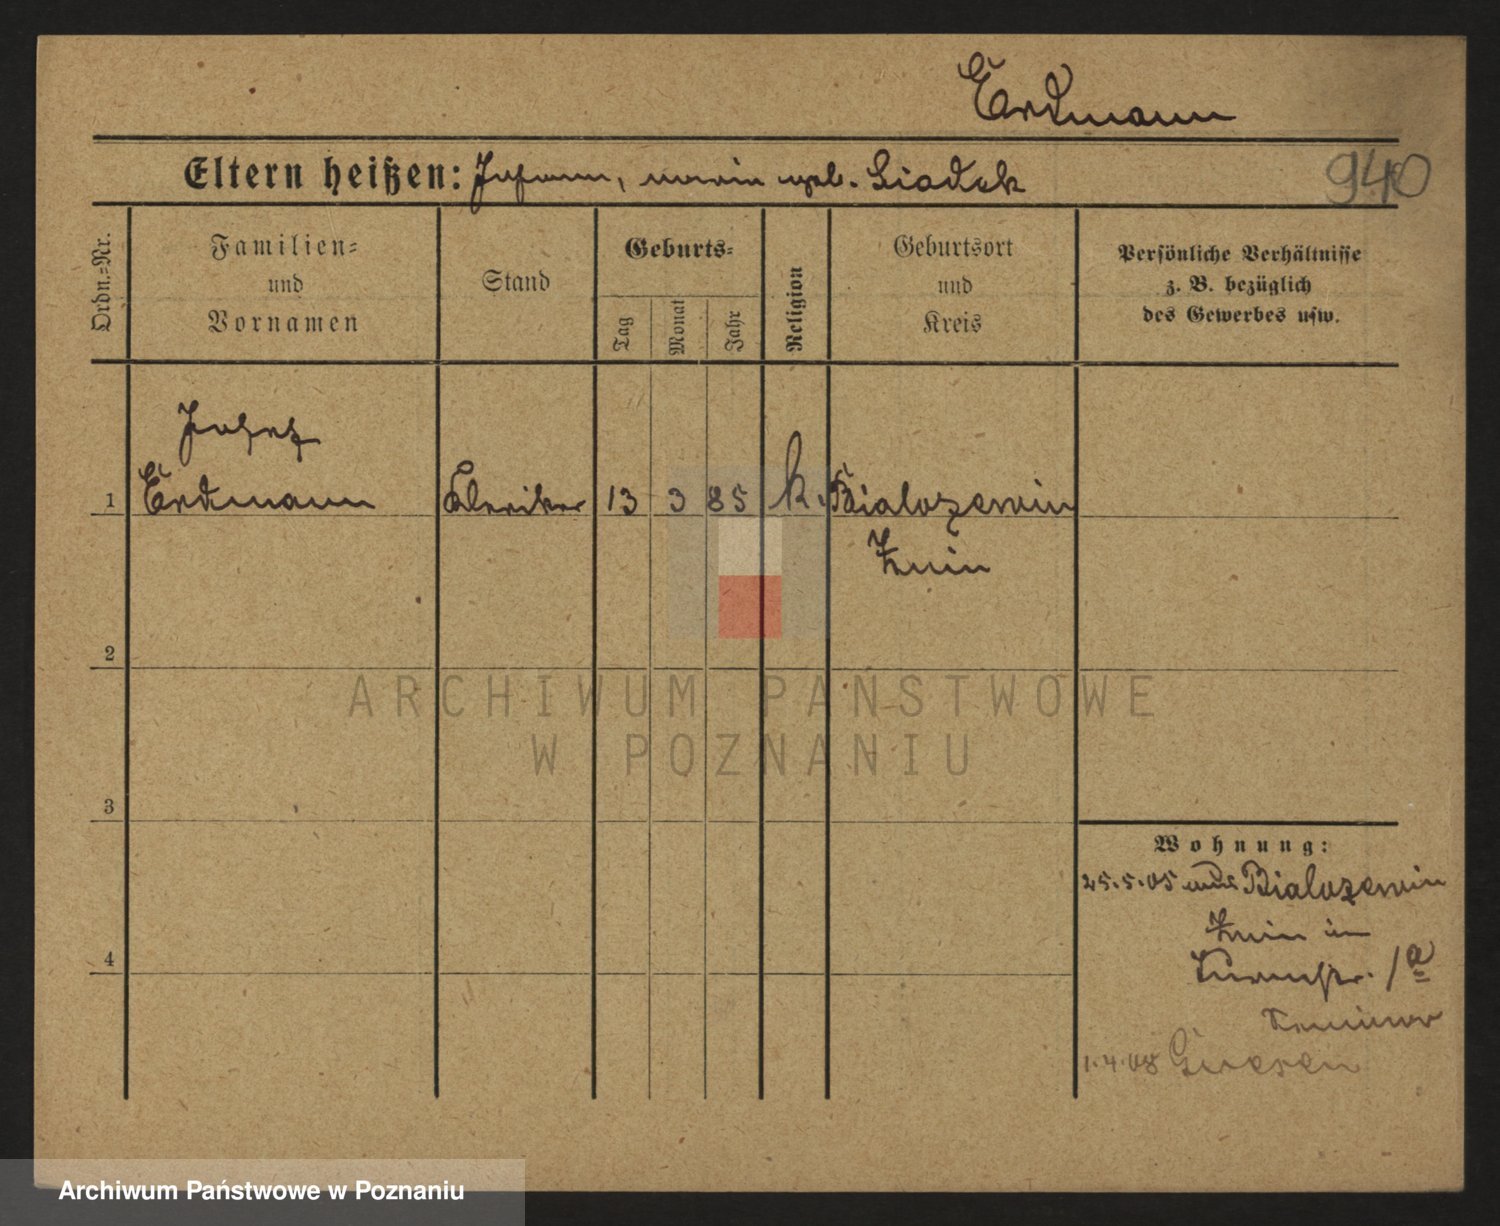 Erdmann
Eltern heißen: Johann, Maria geb. Siadek
940
Ordn.=Nr.
Familien=
und
Vornamen
Stand
Geburts=
Tag
Monat
Jahr
Religion
Geburtsort
und
Kreis
Persönliche Verhältnisse
z. B. bezüglich
des Gewerbes usw.
Josef
1 Erdmann Kleriker 13 3 85 k. Bialozewin
Znin
2
ARCHIWUM PAŃSTWOWE
W POZNANIU
3
Wohnung:
25.5.05 aus Bialozewin
Znin in
4
Turmstr. 1a
Seminar
1.4.08 Gnesen
Archiwum Państwowe w Poznaniu